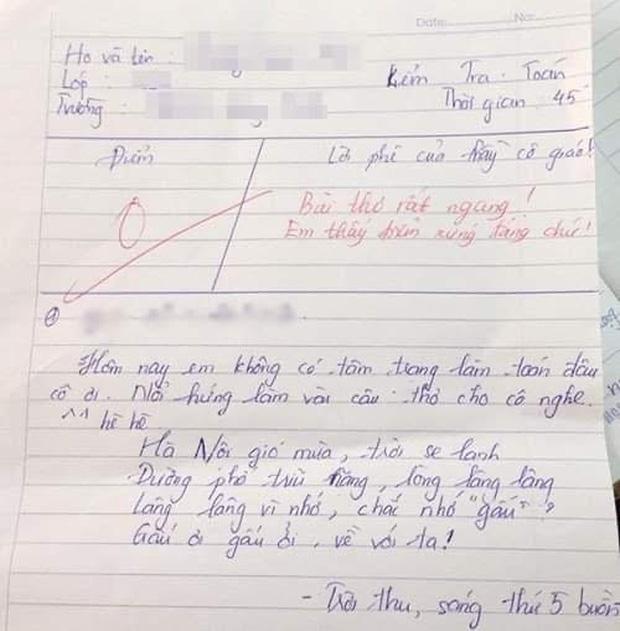 Date: No:
Họ và tên :
Lớp :
Trường :
Kiểm Tra Toán
Thời gian 45'
Điểm
Lời phê của thầy cô giáo!
0
Bài thơ rất ngang!
Em thấy điểm xứng đáng chứ!
Hôm nay em không có tâm trạng làm toán đâu
cô ơi. Nổi hứng làm vài câu thơ cho cô nghe.
^^ hề hề
Hà Nội gió mùa, trời se lạnh
Đường phố trĩu nặng, lòng lâng lâng
Lâng lâng vì nhớ, chắc nhớ "gấu"?
Gấu ơi gấu ỏi, về với ta!
- Trời thu, sáng thứ 5 buồn